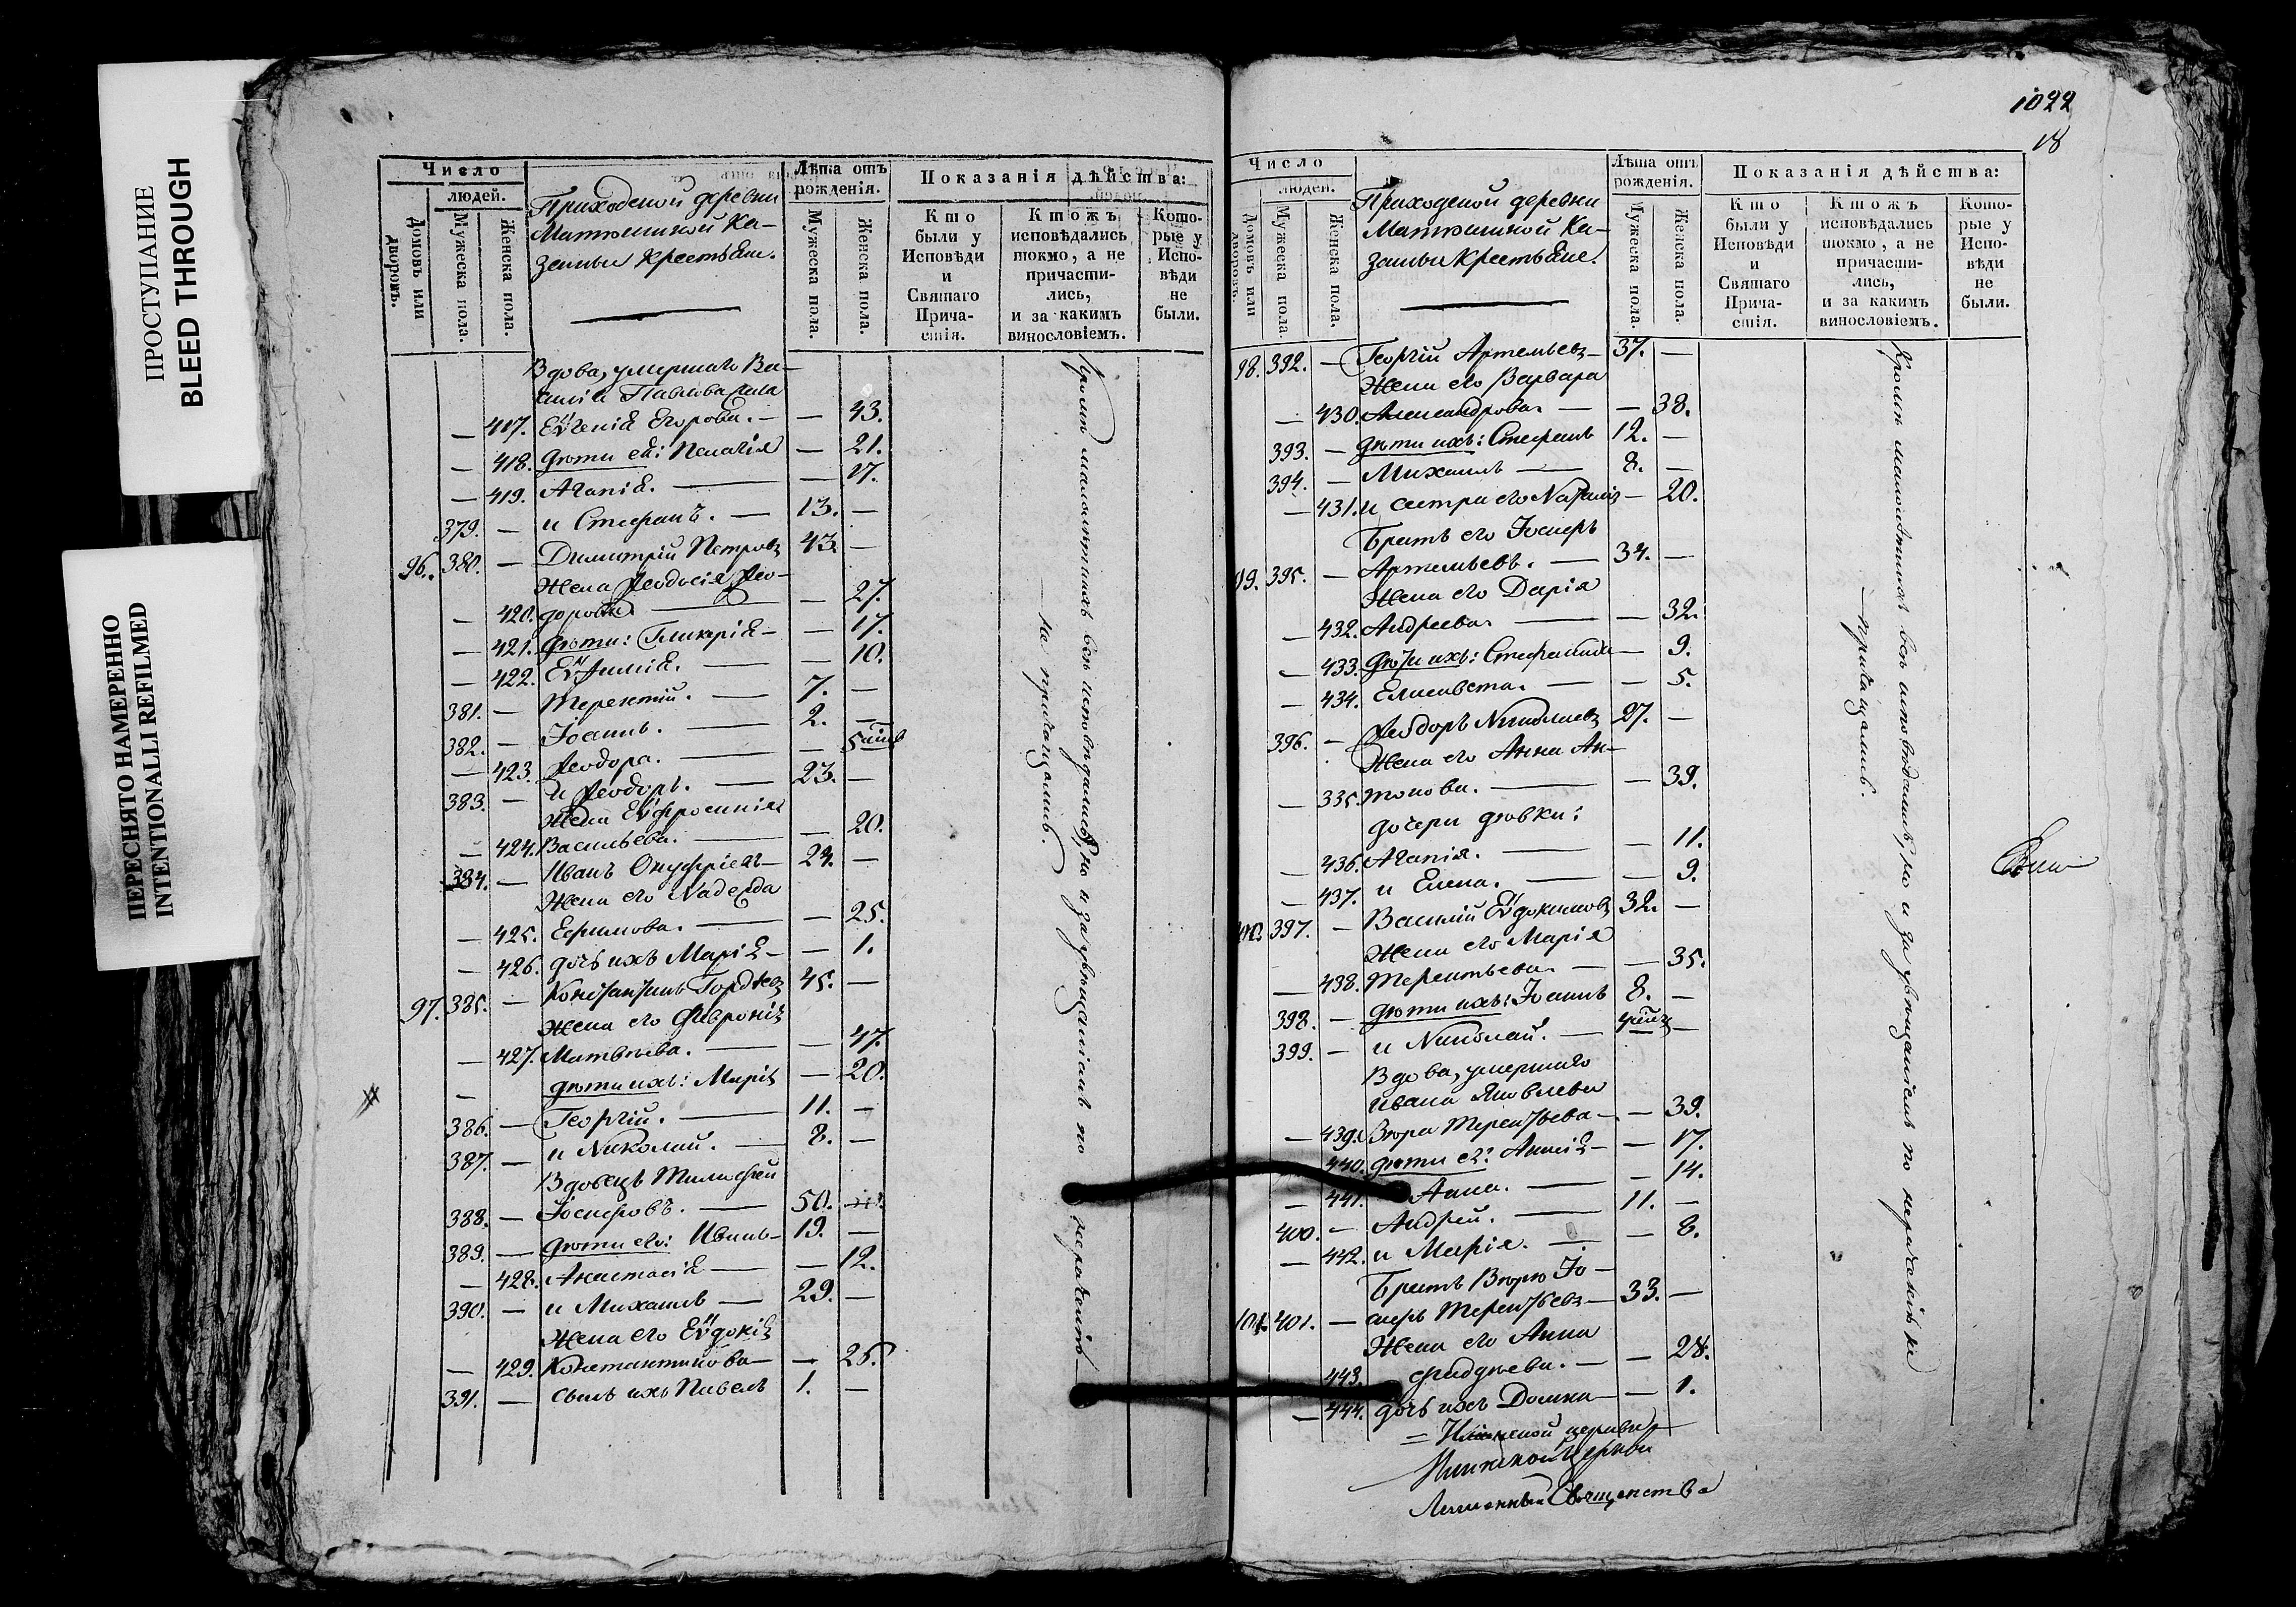 ПРОСТУПАНИЕ
BLEED THROUGH
ПЕРЕСНЯТО НАМЕРЕННО
INTENTIONALLI REFILMED
Число
людей.
Домовъ или дворовъ.
Мужеска пола.
Женска пола.
Приходской деревни
Матюшиной Ка-
зенны крестьяне.
Лѣта отъ рожденія.
Мужеска пола.
Женска пола.
Показанія дѣйства:
Кто были у Исповѣди и Святаго Прича-стія.
Ктожъ исповѣдались токмо, а не причасти-лись, и за какимъ винословіемъ.
Кото-рые у Испо-вѣди не были.
Вдова, умершаго Ва-
силія Павлова жена
— 417. Еѵгенія Егорова. — — 43.
— 418. Дѣти ея: Пелагія — 21.
— 419. Агапія. — — 17.
379. — и Стефанъ. — 13. —
96. 380. — Димитрій Петровъ 43. —
Жена Феодосія Фео-
— 420. дорова. — — 27.
— 421. Дѣти: Гликерія — — 17.
— 422. Еѵфимія. — — 10.
381. — Терентій. — 7. —
382. — Іоаннъ. — 2. —
— 423. Феодора. — —
383. — и Феодоръ. — 23. —
Жена Еѵфросинія
— 424. Васильева. — — 20.
384. — Иванъ Онуфріевъ — 24. —
Жена его Надежда
— 425. Ефимова. — — 25.
— 426. дочь ихъ Марія — — 1.
97. 385. — Константинъ Гордѣевъ 45. —
Жена его Февронія
— 427. Матвѣева. — — 47.
— дѣти ихъ: Марія — 20.
386. — Георгій. — 11. —
387. — и Николай. — 8. —
Вдовецъ Тимофей
388. — Іосифовъ. — 50. —
389. — дѣти его: Иванъ — 19. —
— 428. Анастасія — — 12.
390. — и Михаилъ — 29. —
Жена его Еѵдокія
— 429. Константинова — — 25.
391. — сынъ ихъ Павелъ 1. —
Кромѣ малолѣтнихъ всѣ исповѣдались, но и за увѣщаніемъ по нераченію
не причащались.
1022
18
Число
людей.
Домовъ или дворовъ.
Мужеска пола
Женска пола.
Приходской деревни
Матюшиной Ка-
зенны крестьяне.
Лѣта отъ рожденія.
Мужеска пола.
Женска пола.
Показанія дѣйства:
Кто были у Исповѣди и Святаго Прича-стія.
Ктожъ исповѣдались токмо, а не причасти-лись, и за какимъ винословіемъ.
Кото-рые у Испо-вѣди не были.
98. 392. — Георгій Артемьевъ — 37. —
Жена его Варвара
— 430. Александрова. — — 38.
393. — дѣти ихъ: Стефанъ 12. —
394. — Михаилъ — 8. —
— 431. и сестра его Наталія — 20.
Братъ его Іосифъ
99. 395. — Артемьевъ. — 34. —
Жена его Дарія
— 432. Андреева. — — 32.
— 433. Дѣти ихъ: Стефанида — 9.
— 434. Елисавета. — — 5.
396. — Феодоръ Николаевъ 27. —
Жена его Анна Ан-
— 335. тонова. — — 39.
дочери дѣвки:
— 436. Агапія. — — 11.
— 437. и Елена. — — 9.
100. 397. — Василій Еѵдокимовъ 32. —
Жена его Марія
— 438. Терентьева. — — 35.
398. — дѣти ихъ: Іоаннъ 8. —
399. — и Николай. — —
Вдова, умершаго
Ивана Яковлева
— 439. Вѣра Терентьева — — 39.
— 440. дѣти ея: Аннія — — 17.
— 441. Анна. — — 14.
400. — Андрей. — 11. —
— 442. и Марія. — — 8.
Братъ Вѣры Іо-
101. 401. — сифъ Терентьевъ — 33. —
Жена его Анна
443. Фаддѣева. — — 28.
— 444. дочь ихъ Домна — — 1.
Кромѣ малолѣтнихъ всѣ исповѣдались, но и за увѣщаніемъ по нераченію не
причащались.
церкви
церкви
Священства